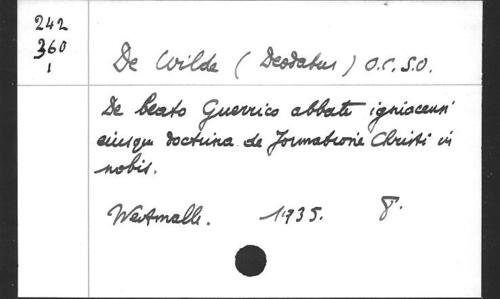 242
360
1
De Wilde (Deodatus) O.C.S.O.
De beato Guerrico abbate igniacensi
eiusque doctrina de formatione Christi in
nobis.
Westmalle. 1935. 8°.